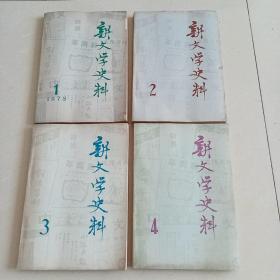 新文学史料
1
1978
新文学史料
2
新文学史料
3
新文学史料
4